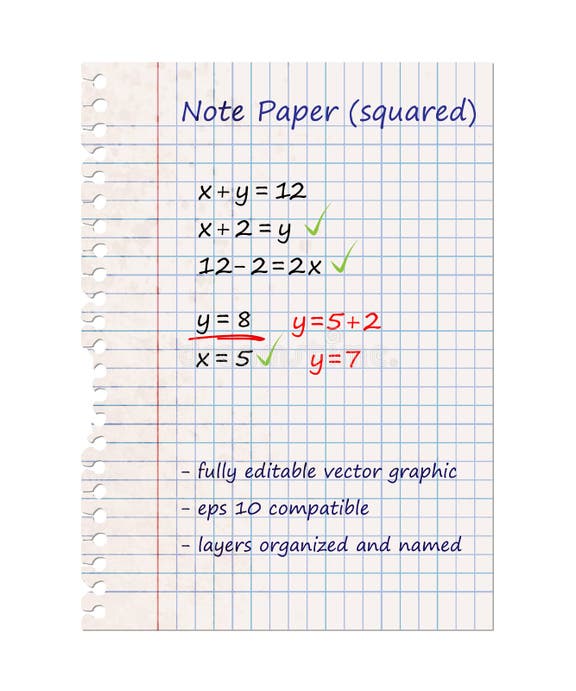 Note Paper (squared)
x+y=12
x+2=y
12-2=2x
y=8 y=5+2
x=5 y=7
- fully editable vector graphic
- eps 10 compatible
- layers organized and named